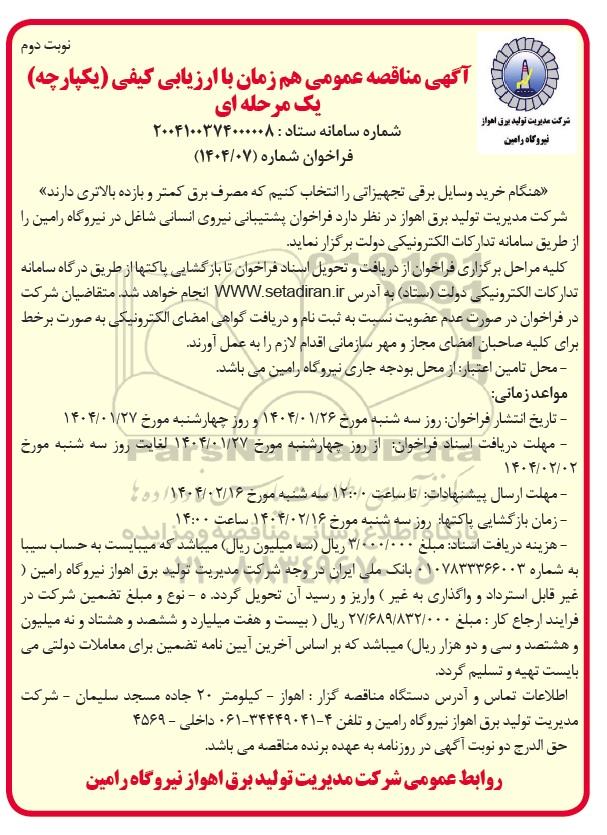 نوبت دوم
شرکت مدیریت تولید برق اهواز
نیروگاه رامین
آگهی مناقصه عمومی هم زمان با ارزیابی کیفی (یکپارچه)
یک مرحله ای
شماره سامانه ستاد : ۲۰۰۴۱۰۰۳۷۴۰۰۰۰۰۸
فراخوان شماره (۱۴۰۴/۰۷)
«هنگام خرید وسایل برقی تجهیزاتی را انتخاب کنیم که مصرف برق کمتر و بازده بالاتری دارند»
شرکت مدیریت تولید برق اهواز در نظر دارد فراخوان پشتیبانی نیروی انسانی شاغل در نیروگاه رامین را
از طریق سامانه تدارکات الکترونیکی دولت برگزار نماید.
کلیه مراحل برگزاری فراخوان از دریافت و تحویل اسناد فراخوان تا بازگشایی پاکتها از طریق درگاه سامانه
تدارکات الکترونیکی دولت (ستاد) به آدرس WWW.setadiran.ir انجام خواهد شد. متقاضیان شرکت
در فراخوان در صورت عدم عضویت نسبت به ثبت نام و دریافت گواهی امضای الکترونیکی به صورت برخط
برای کلیه صاحبان امضای مجاز و مهر سازمانی اقدام لازم را به عمل آورند.
- محل تامین اعتبار: از محل بودجه جاری نیروگاه رامین می باشد.
مواعد زمانی:
- تاریخ انتشار فراخوان: روز سه شنبه مورخ ۱۴۰۴/۰۱/۲۶ و روز چهارشنبه مورخ ۱۴۰۴/۰۱/۲۷
- مهلت دریافت اسناد فراخوان: از روز چهارشنبه مورخ ۱۴۰۴/۰۱/۲۷ لغایت روز سه شنبه مورخ
۱۴۰۴/۰۲/۰۲
- مهلت ارسال پیشنهادات: تا ساعت ۱۲:۰۰ سه شنبه مورخ ۱۴۰۴/۰۲/۱۶
- زمان بازگشایی پاکتها: روز سه شنبه مورخ ۱۴۰۴/۰۲/۱۶ ساعت ۱۴:۰۰
- هزینه دریافت اسناد: مبلغ ۳/۰۰۰/۰۰۰ ریال (سه میلیون ریال) میباشد که میبایست به حساب سیبا
به شماره ۰۱۰۷۸۳۳۳۶۶۰۰۳ بانک ملی ایران در وجه شرکت مدیریت تولید برق اهواز نیروگاه رامین (
غیر قابل استرداد و واگذاری به غیر ) واریز و رسید آن تحویل گردد. ه - نوع و مبلغ تضمین شرکت در
فرایند ارجاع کار : مبلغ ۲۷/۶۸۹/۸۳۲/۰۰۰ ریال ( بیست و هفت میلیارد و ششصد و هشتاد و نه میلیون
و هشتصد و سی و دو هزار ریال) میباشد که بر اساس آخرین آیین نامه تضمین برای معاملات دولتی می
بایست تهیه و تسلیم گردد.
اطلاعات تماس و آدرس دستگاه مناقصه گزار : اهواز - کیلومتر ۲۰ جاده مسجد سلیمان - شرکت
مدیریت تولید برق اهواز نیروگاه رامین و تلفن ۴-۳۴۴۴۹۰۴۱-۰۶۱ داخلی - ۴۵۶۹
حق الدرج دو نوبت آگهی در روزنامه به عهده برنده مناقصه می باشد.
روابط عمومی شرکت مدیریت تولید برق اهواز نیروگاه رامین
ParsNamadData
پایگاه اطلاع رسانی مناقصه و مزایده